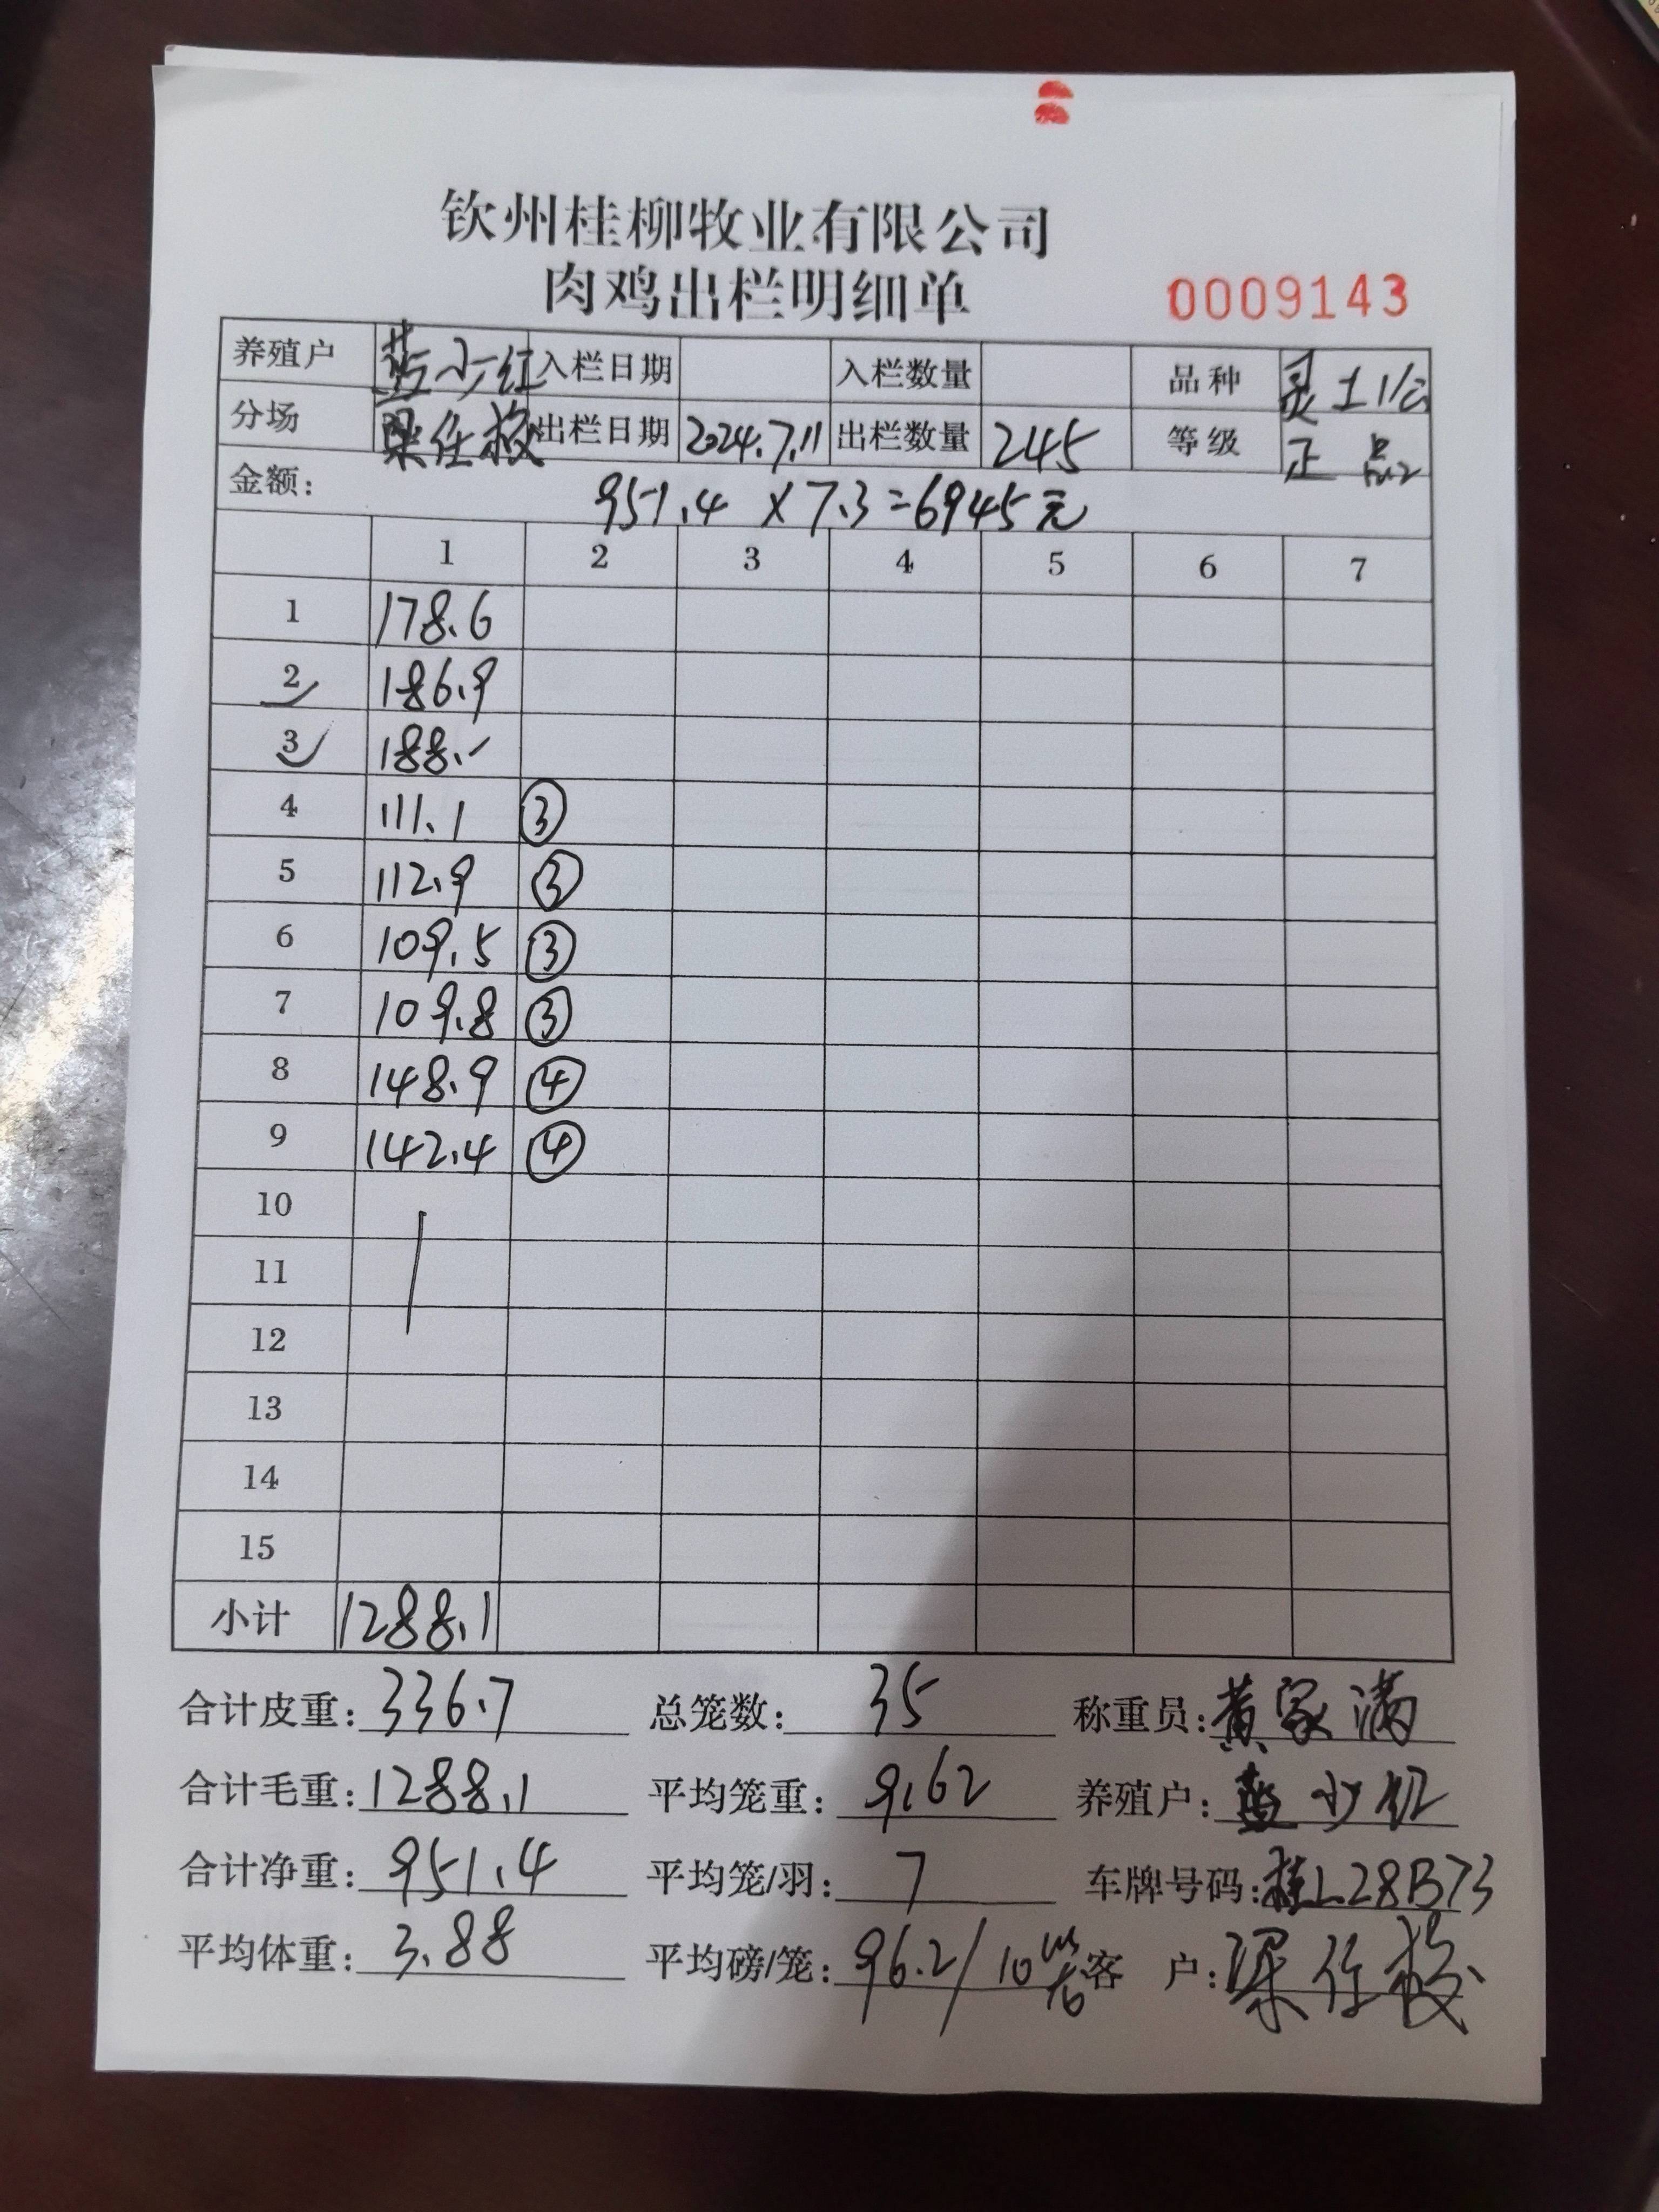 钦州桂柳牧业有限公司
肉鸡出栏明细单 0009143
养殖户 小红 入栏日期 入栏数量 品种 灵土
分场 梁任 出栏日期 2024.7.11 出栏数量 245 等级 正品
金额: 951.4 x 7.3=6945元
1 2 3 4 5 6 7
1 178.6
2 186.9
3 188.-
4 111.1 ③
5 112.9 ③
6 109.5 ③
7 109.8 ③
8 148.9 ④
9 142.4 ④
10
11
12
13
14
15
小计 1288.1
合计皮重: 336.7 总笼数: 35 称重员: 黄家满
合计毛重: 1288.1 平均笼重: 9.62 养殖户:
合计净重: 951.4 平均笼/羽: 7 车牌号码: 桂L28B73
平均体重: 3.88 平均磅/笼: 96.2/10 客 户: 梁任